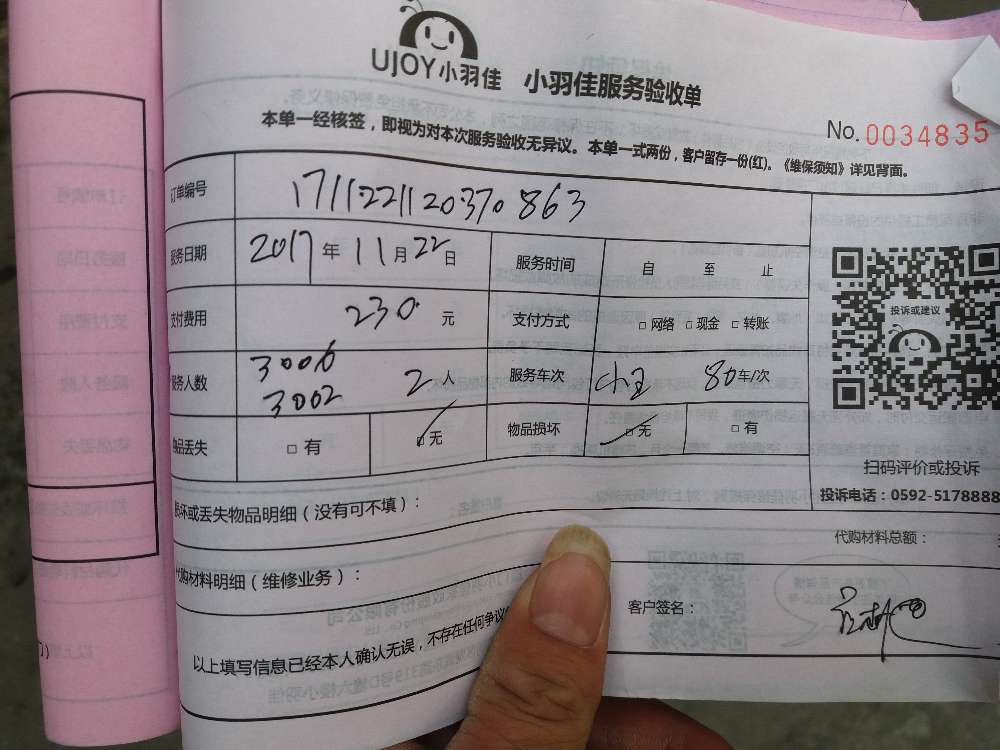 UJOY小羽佳 小羽佳服务验收单
No. 0034835
本单一经核签，即视为对本次服务验收无异议。本单一式两份，客户留存一份(红)。《维保须知》详见背面。
订单编号 171122112037 0863
服务日期 2017年11月22日 服务时间 自 至 止
支付费用 230 元 支付方式 □网络 □现金 □转账
服务人数 3006 3002 2人 服务车次 小 80车/次
物品丢失 □有 □无 物品损坏 □无 □有
投诉或建议
扫码评价或投诉
投诉电话：0592-5178888
损坏或丢失物品明细（没有可不填）：
代购材料总额：
代购材料明细（维修业务）：
客户签名：
以上填写信息已经本人确认无误，不存在任何争议